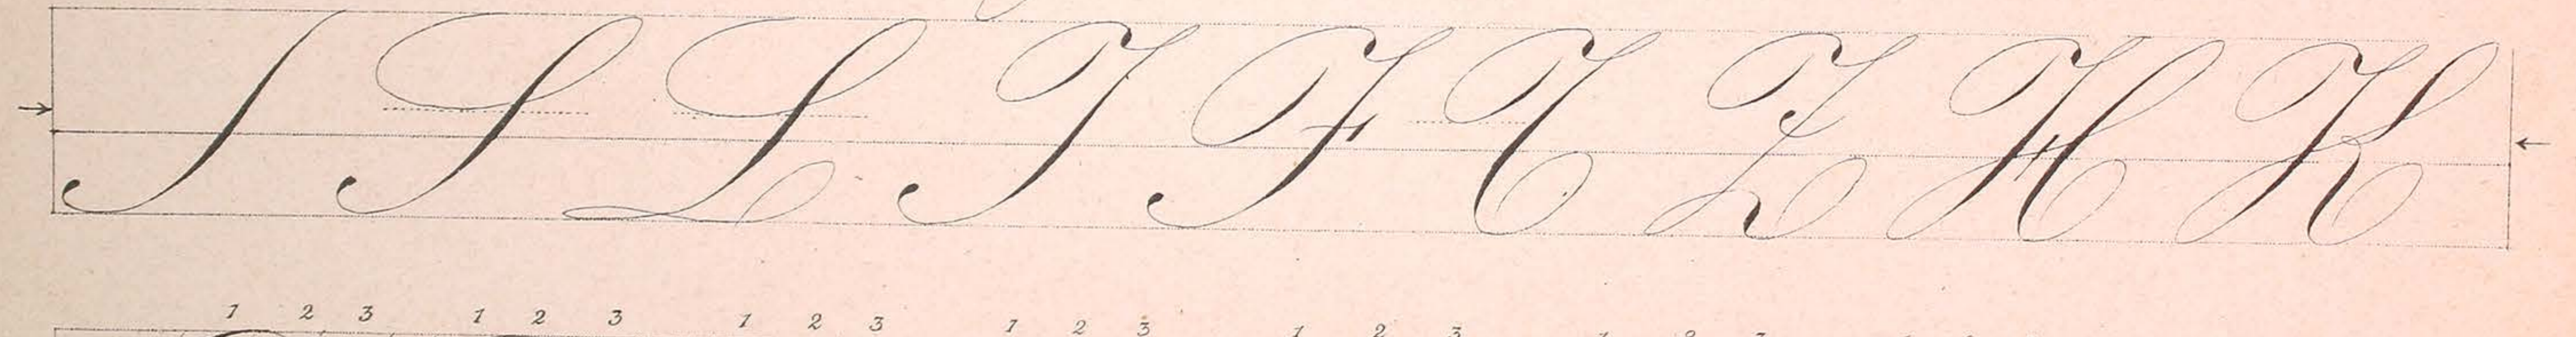 S L T F T Z H K
1 2 3 1 2 3 1 2 3 1 2 3 1 2 3